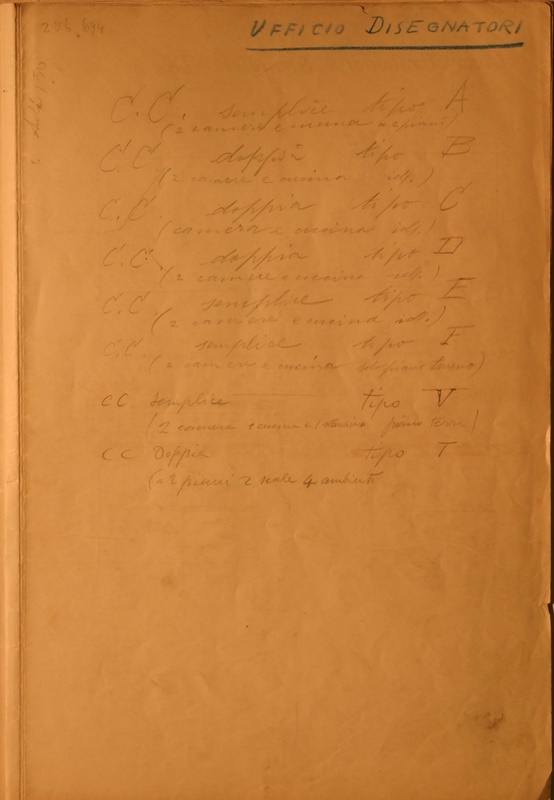 256.694
UFFICIO DISEGNATORI
C.C. semplice tipo A
(2 camere e cucina a 2 piani)
C.C doppia tipo B
(2 camere e cucina id.)
C.C. doppia tipo C
(camera e cucina id.)
C.C. doppia tipo D
(2 camere e cucina id.)
C.C semplice tipo E
(2 camere e cucina id.)
C.C. semplice tipo F
(2 camere e cucina solo piano terreno)
CC semplice tipo V
(2 camere e cucina piano terra)
CC Doppia tipo T
(a 2 piani 2 scale 4 ambienti